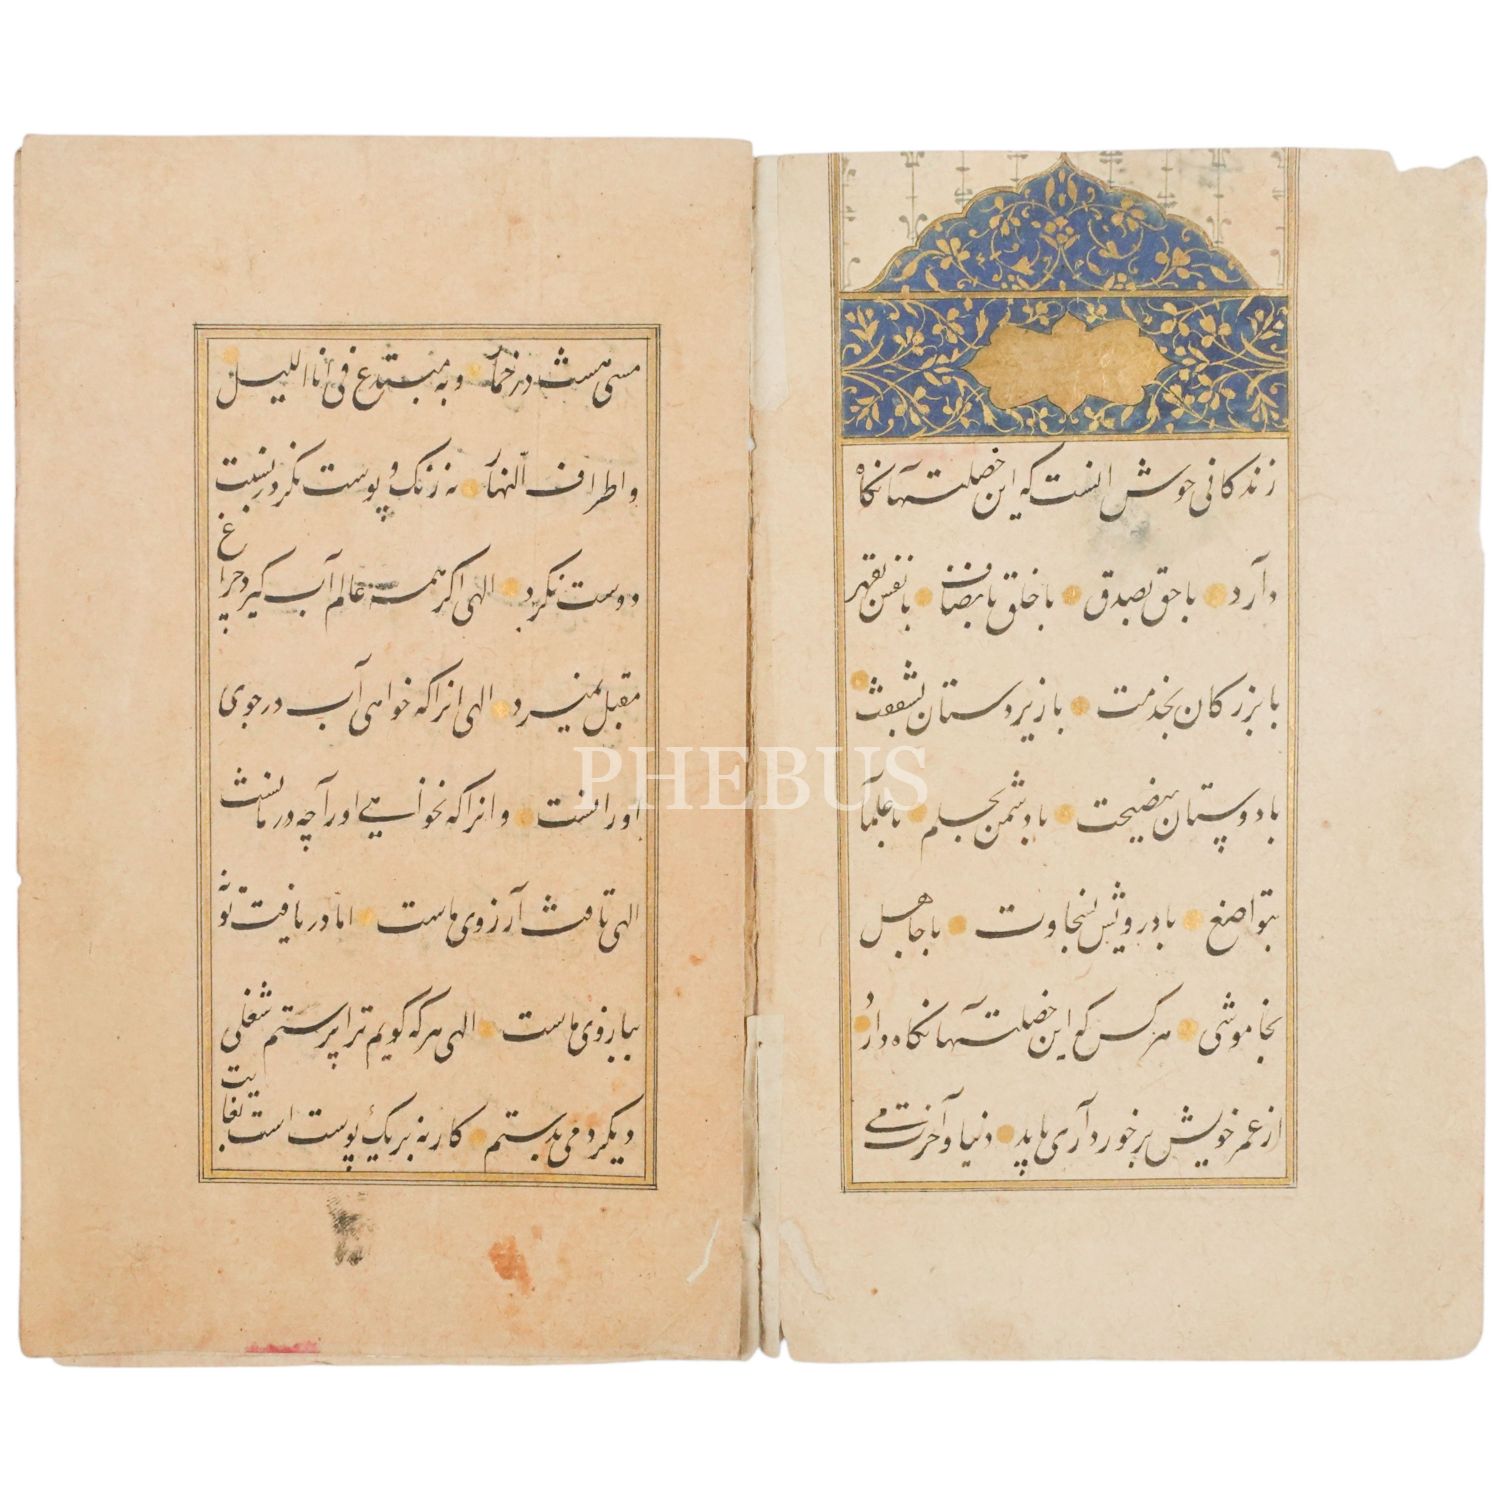 زندکانی خوش انست که این خصلتها نکاه
دارد با حق بصدق با خلق بانصاف با نفس بقهر
با بزرکان بخدمت با زیردستان بشفقت
با دوستان بنصیحت با دشمن بحلم با علما
بتواضع با درویش بسخاوت با جاهل
بخاموشی هرکس که این خصلتها نکاه دارد
از عمر خویش برخورداری یابد دنیا و آخرت می
مسی هست در خمار و به مبتدع فی اناالیل
و اطراف النهار نه زنک و پوست نکرد بنسبت
دوست نکرد الهی اکر همه عالم آب کیرد چراغ
مقبل نمیرد الهی انراکه خواهی آب در جوی
اورانست وانراکه نخواهی اورا چه درمانست
الهی تافت آرزوی ماست اما دریافت تو نه
ببازوی ماست الهی هرکه کویم ترا پرستم شغلی
دیکر دمی بدستم کار نه برنک پوست است بغایت
PHEBUS